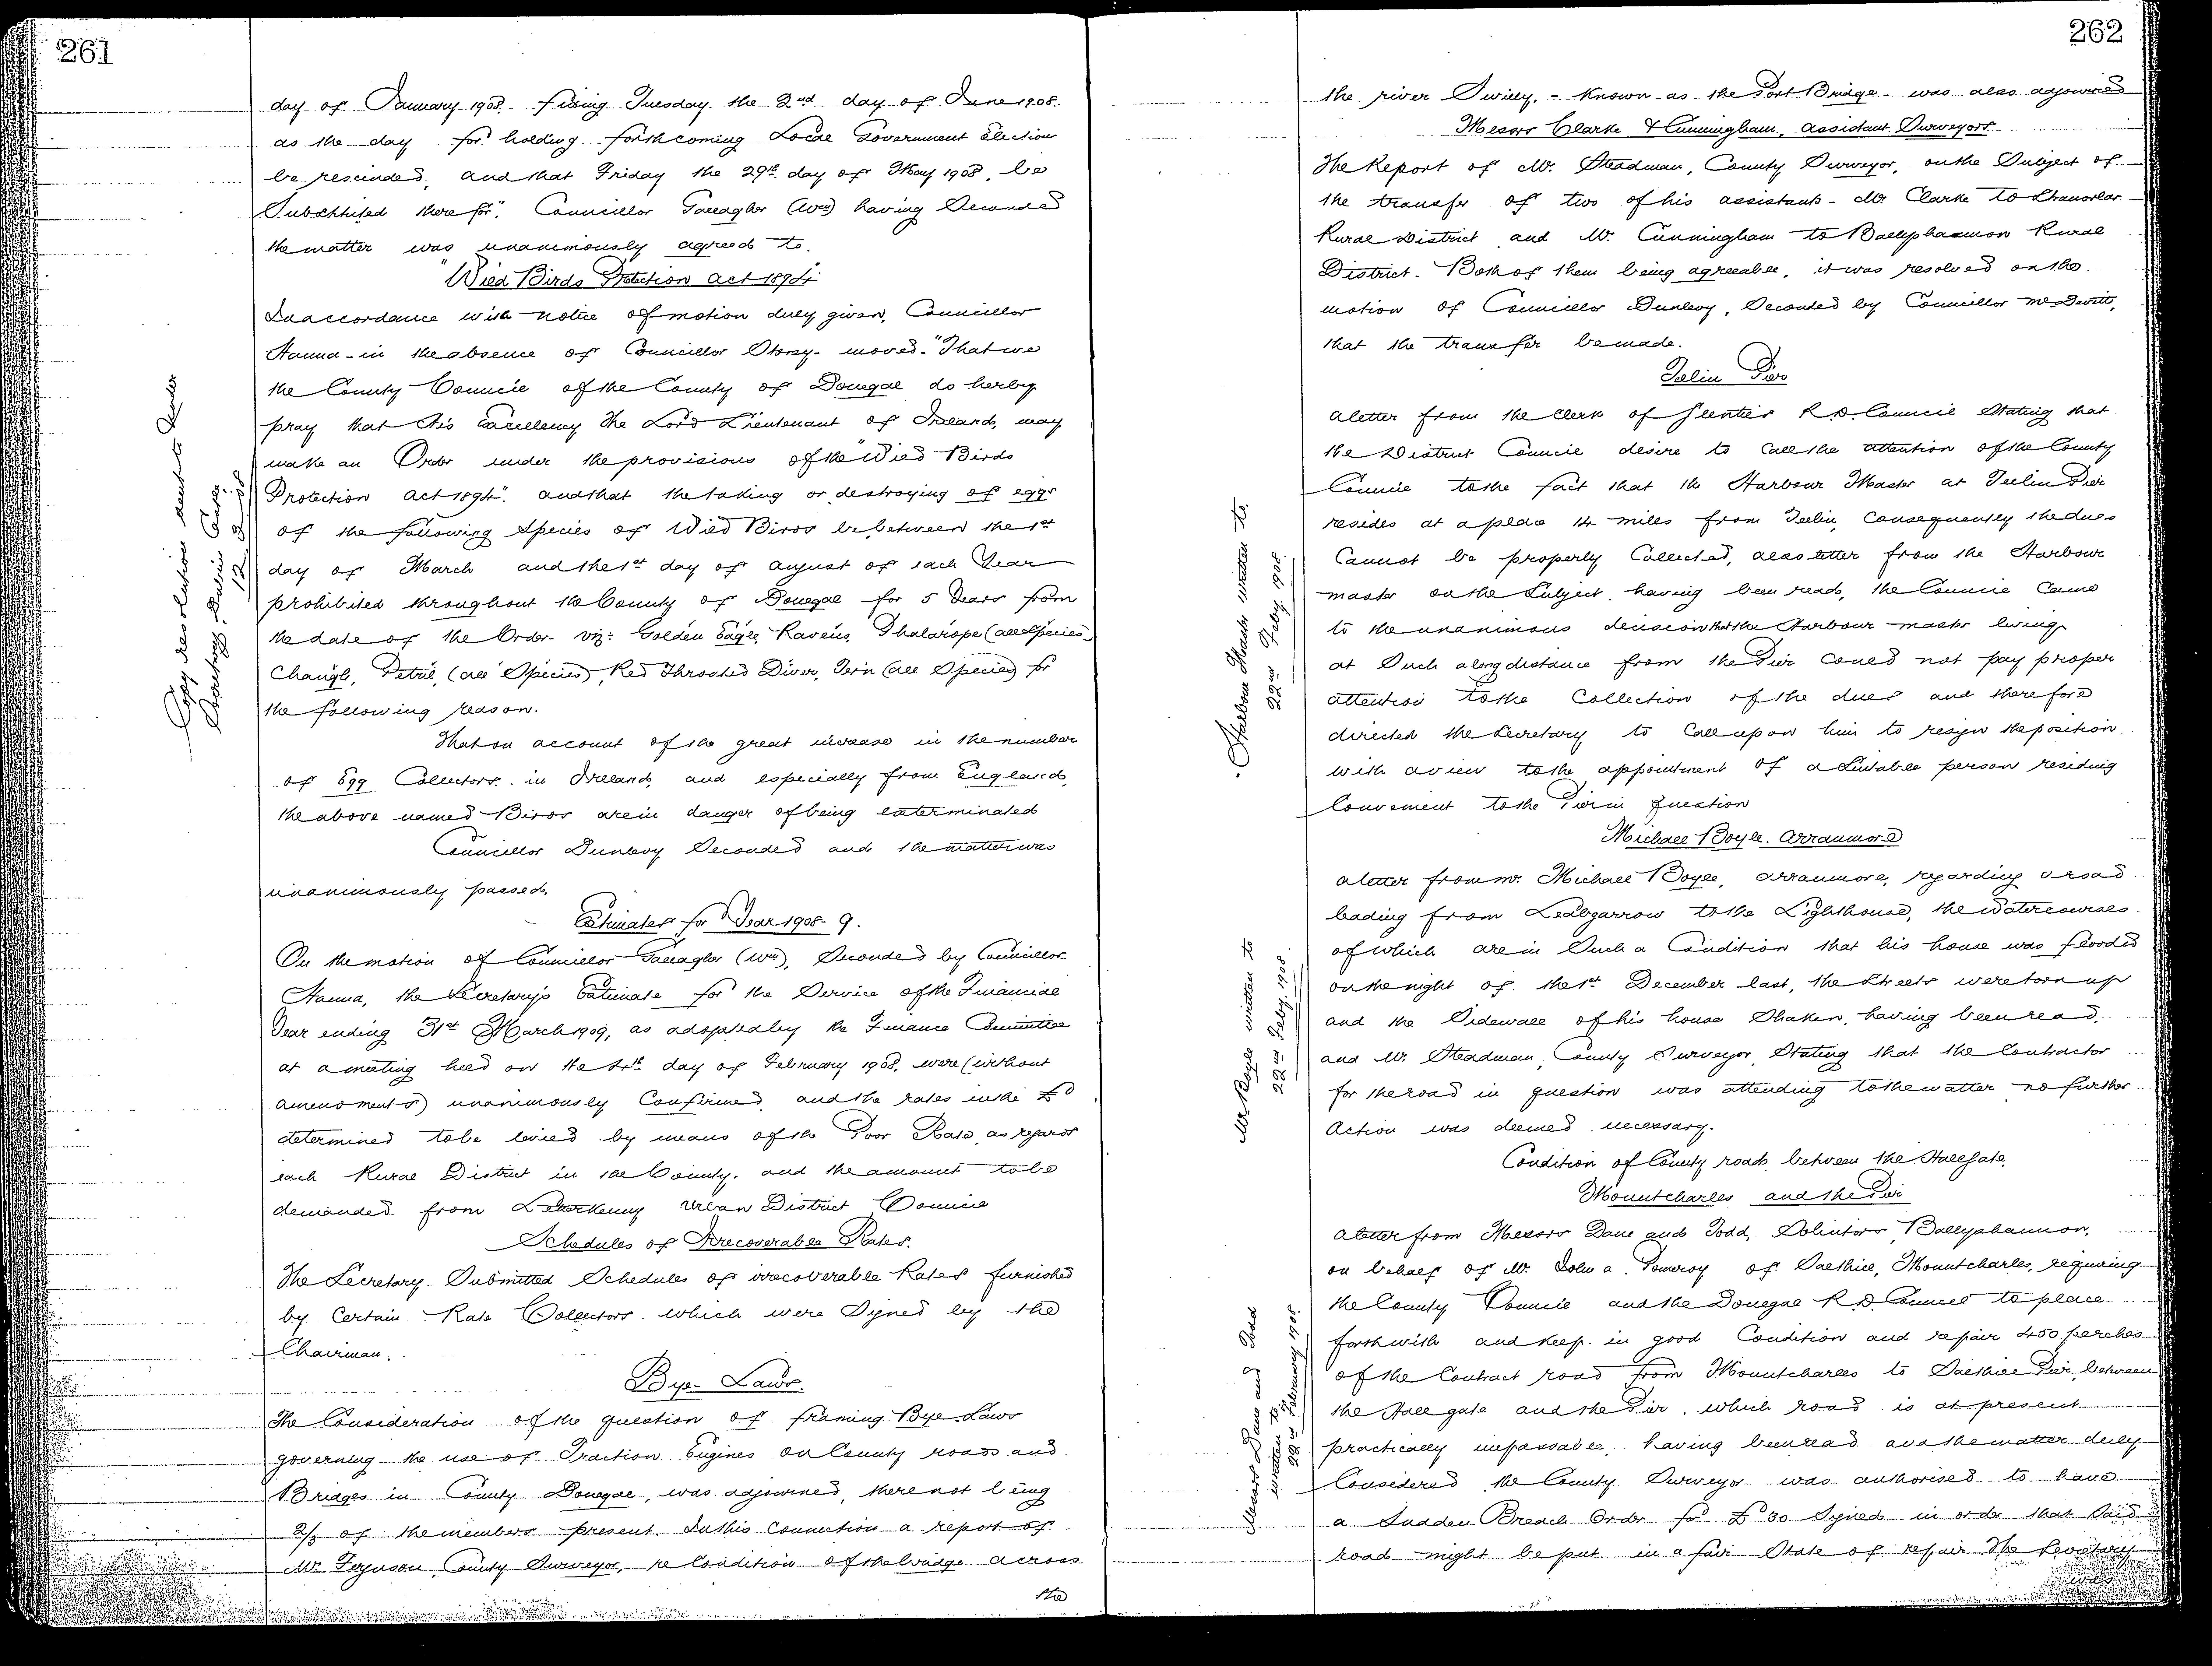 261
day of January 1908. fixing Tuesday the 2nd day of June 1908.
as the day for holding forthcoming Local Government Election
be rescinded, and that Friday the 29th day of May 1908, be
Substituted therefor". Councillor Gallagher (Wm) having Seconded
the matter was unanimously agreed to.
"Wild Birds Protection Act 1894"
In accordance with notice of motion duly given, Councillor
Hanna - in the absence of Councillor Storey - moved - "That we
the County Council of the County of Donegal do herby
pray that His Excellency the Lord Lieutenant of Ireland, may
make an Order under the provisions of the "Wild Birds
Protection Act 1894". and that the taking or destroying of eggs
of the following Species of Wild Birds be between the 1st
day of March and the 1st day of August of each Year
prohibited throughout the County of Donegal for 5 Years from
the date of the Order - viz: Golden Eagle, Ravens, Phalarope (all Species)
Chough, Petril, (all Species), Red Throated Diver, Tern (all Species) for
the following reason.
That on account of the great increase in the number
of Egg Collectors in Ireland, and especially from England,
the above named Birds are in danger of being exterminated
Councillor Dunlevy Seconded and the matter was
unanimously passed.
Copy resolution sent to Under
Secretary, Dublin Castle.
Estimates for Year 1908-9.
On the motion of Councillor Gallagher (Wm), Seconded by Councillor
Hanna, the Secretary's Estimate for the Service of the Financial
Year ending 31st March 1909, as adopted by the Finance Committee
at a meeting held on the day of February 1908, were (without
amendments) unanimously Confirmed, and the rates in the £
determined to be levied by means of the Poor Rate, as regards
each Rural District in the County, and the amount to be
demanded from Letterkenny Urban District Council
Schedules of Irrecoverable Rates.
The Secretary Submitted Schedules of irrecoverable Rates furnished
by Certain Rate Collectors which were Signed by the
Chairman.
Bye-Laws.
The Consideration of the question of framing Bye Laws
governing the use of Traction Engines on County roads and
Bridges in County Donegal, was adjourned, there not being
2/3 of the members present. In this Connection a report of
Mr. Ferguson, County Surveyor, re Condition of the bridge across
the
262
the river Swilly, - known as the Port Bridge - was also adjourned
Messrs Clarke & Cunningham, assistant Surveyors
The Report of Mr. Steadman, County Surveyor, on the Subject of
the transfer of two of his assistants - Mr Clarke to Stranorlar
Rural District and Mr. Cunningham to Ballyshannon Rural
District. Both of them being agreeable, it was resolved on the
motion of Councillor Dunlevy, Seconded by Councillor McDevitt,
that the transfer be made.
Teelin Pier
A letter from the Clerk of Glenties R.D. Council Stating that
the District Council desire to Call the attention of the County
Council to the fact that the Harbour Master at Teelin Pier
resides at a place 14 miles from Teelin, Consequently the dues
Cannot be properly Collected, also letter from the Harbour
master on the Subject, having been read, the Council Came
to the unanimous decision that the Harbour master living
at Such a long distance from the Pier could not pay proper
attention to the Collection of the dues and therefore
directed the Secretary to Call upon him to resign the position
with a view to the appointment of a Suitable person residing
Convenient to the Pier in question
Harbour Master written to
22nd Feby. 1908.
Michael Boyle. Arranmore
A letter from Mr. Michael Boyle, Arranmore, regarding a road
leading from Leabgarrow to the Lighthouse, the Watercourses
of which are in Such a Condition that his house was flooded
on the night of the 1st December last, the Streets were torn up
and the Sidewall of his house Shaken, having been read,
and Mr. Steadman, County Surveyor, Stating that the Contractor
for the road in question was attending to the matter no further
Action was deemed necessary.
Mr Boyle written to
22nd Feby. 1908.
Condition of County road, between the Hall Gate,
Mountcharles and the Pier
A letter from Messrs Dane and Todd, Solicitors, Ballyshannon,
on behalf of Mr. John A. Pomroy of Salthill, Mountcharles, requiring
the County Council and the Donegal R.D. Council to place
forthwith and keep in good Condition and repair 450 perches
of the Contract road from Mountcharles to Salthill Pier, between
the Hall gate and the Pier, which road is at present
practically impassable, having been read and the matter duly
Considered, the County Surveyor was authorised to have
a Sudden Breach Order for £30 Signed in order that Said
road might be put in a fair State of repair The Secretary
was
Messrs Dane and Todd
written to
22nd February 1908.